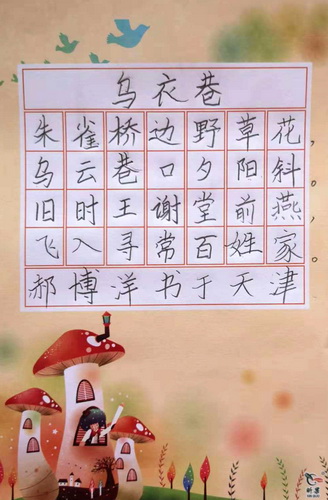 乌衣巷
朱雀桥边野草花，
乌云巷口夕阳斜。
旧时王谢堂前燕，
飞入寻常百姓家。
郝博洋书于天津